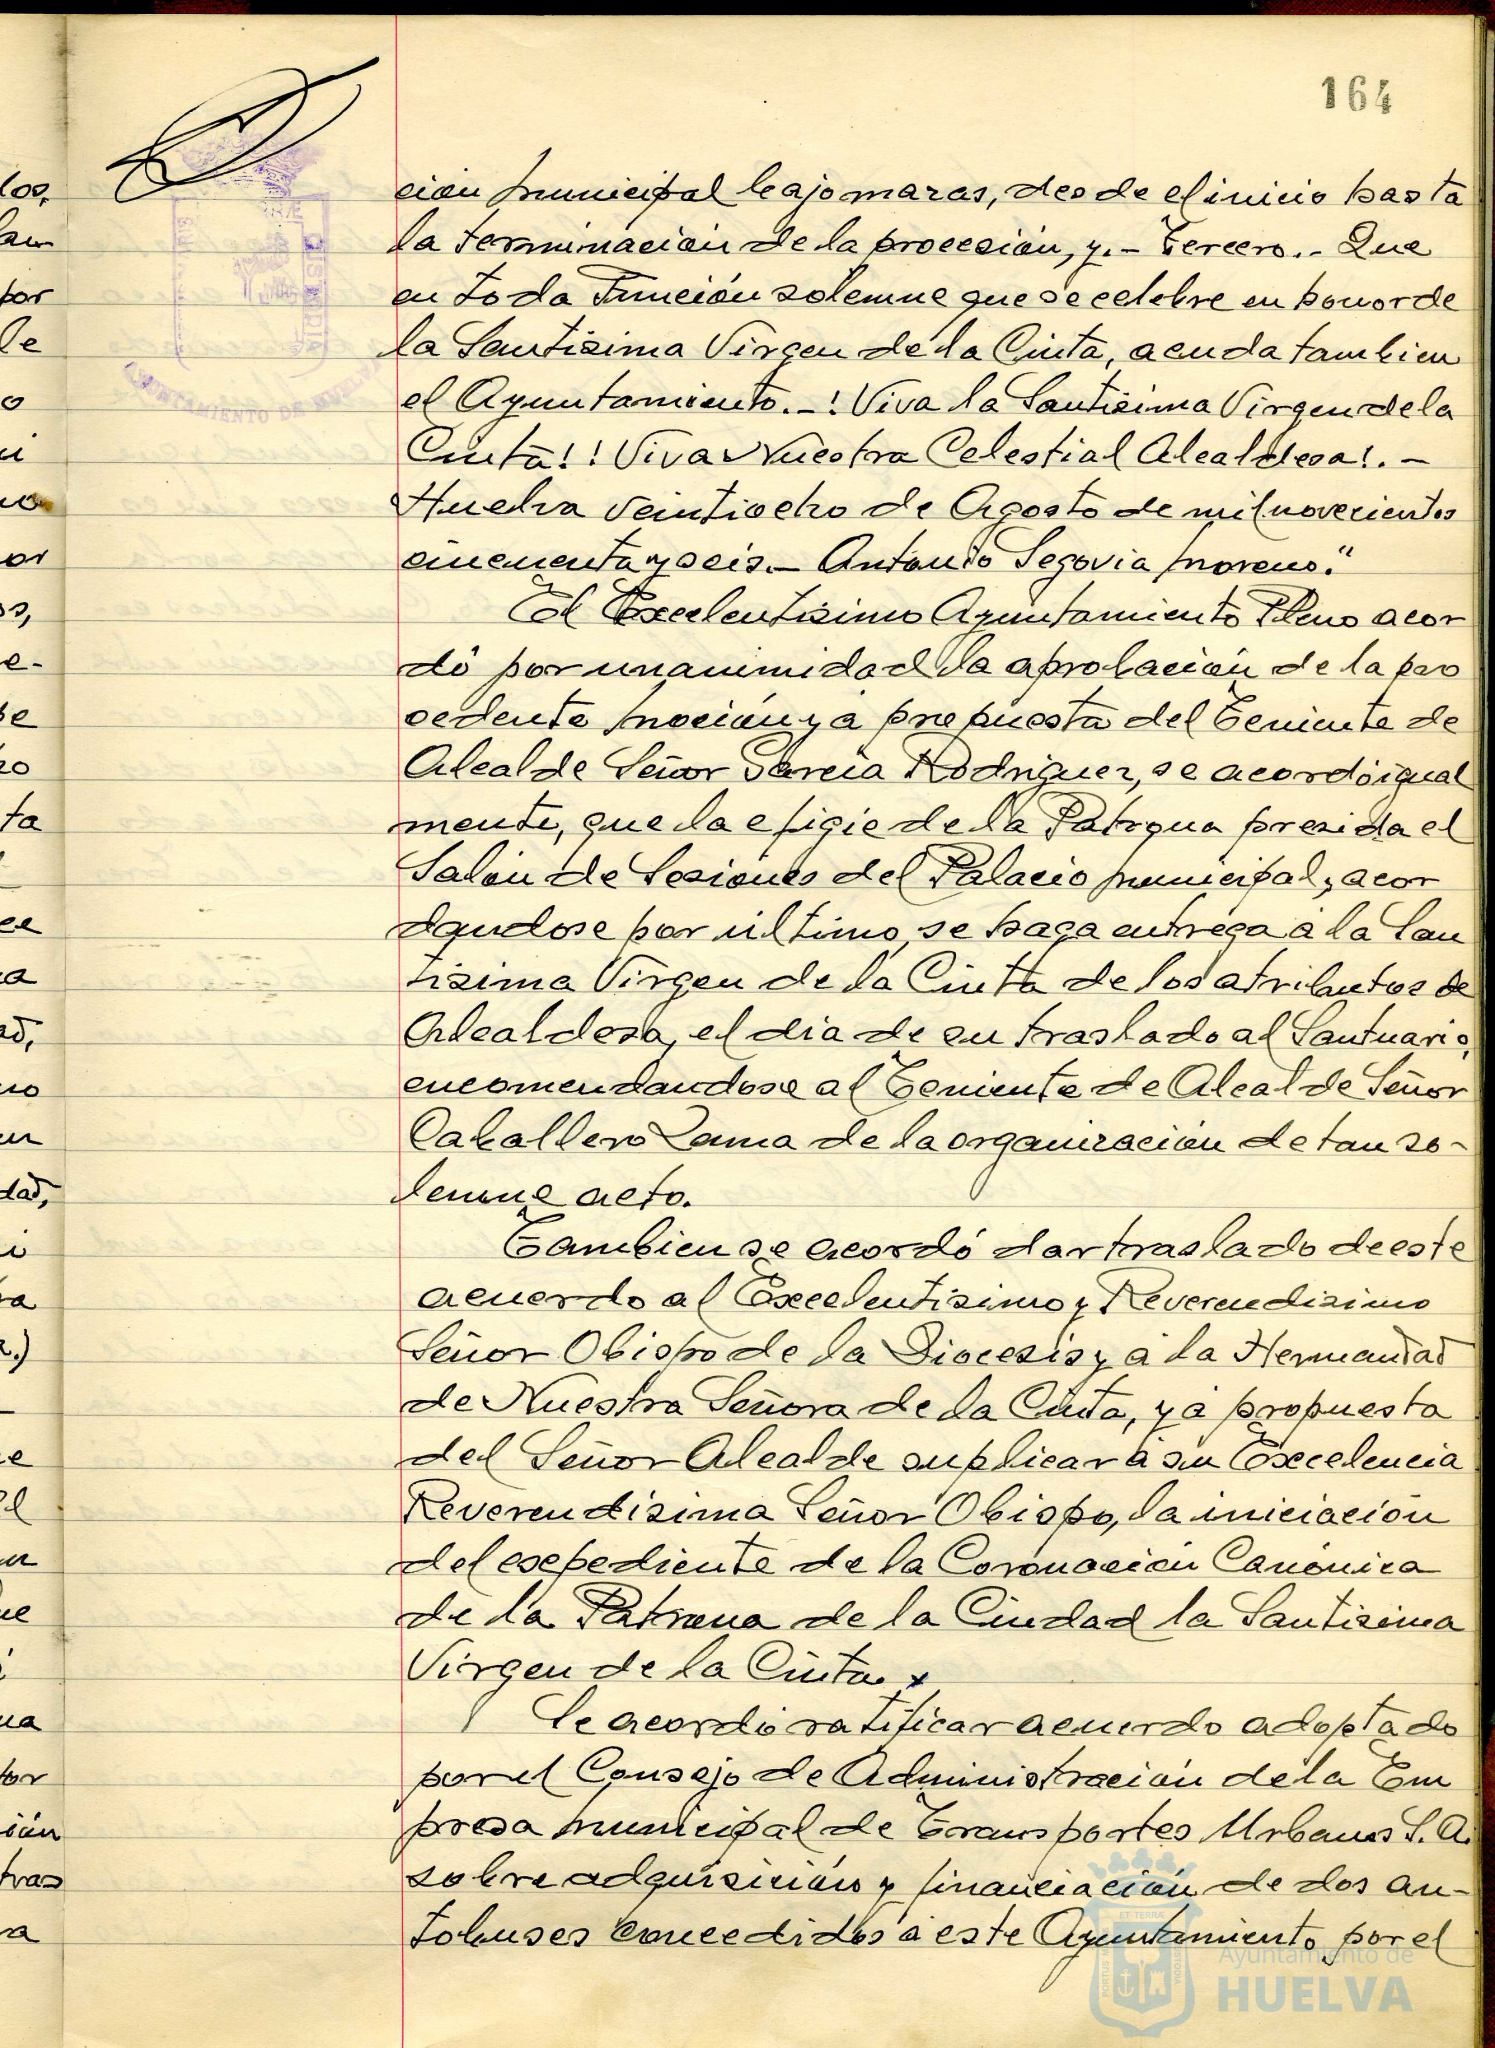 164
cion municipal bajo mazas, desde el inicio hasta
la terminación de la procesión, y.- Tercero.- Que
en toda Función solemne que se celebre en honor de
la Santisima Virgen de la Cinta, acuda tambien
el Ayuntamiento.-! Viva la Santisima Virgen de la
Cinta!! Viva Nuestra Celestial Alcaldesa!.-
Huelva veintiocho de Agosto de mil novecientos
cincuenta y seis.- Antonio Segovia Moreno."
El Excelentisimo Ayuntamiento Pleno acor
dó por unanimidad la aprobación de la pre
cedente moción y a propuesta del Teniente de
Alcalde Señor Garcia Rodriguez, se acordó igual
mente, que la efigie de la Patrona presida el
Salón de Sesiones del Palacio municipal, acor
dandose por último, se haga entrega a la San
tisima Virgen de la Cinta de los atributos de
Alcaldesa, el dia de su traslado al Santuario,
encomendandose al Teniente de Alcalde Señor
Caballero Lama de la organización de tan so-
lemne acto.
Tambien se acordó dar traslado de este
acuerdo al Excelentisimo y Reverendisimo
Señor Obispo de la Diocesis y a la Hermandad
de Nuestra Señora de la Cinta, y a propuesta
del Señor Alcalde suplicar a su Excelencia
Reverendisima Señor Obispo, la iniciación
del expediente de la Coronación Canónica
de la Patrona de la Ciudad la Santisima
Virgen de la Cinta. x
Se acordó ratificar acuerdo adoptado
por el Consejo de Administración de la Em
presa municipal de Transportes Urbanos S.A.
sobre adquisición y financiación de dos au-
tobuses concedidos a este Ayuntamiento por el
AYUNTAMIENTO DE HUELVA
Ayuntamiento de
HUELVA